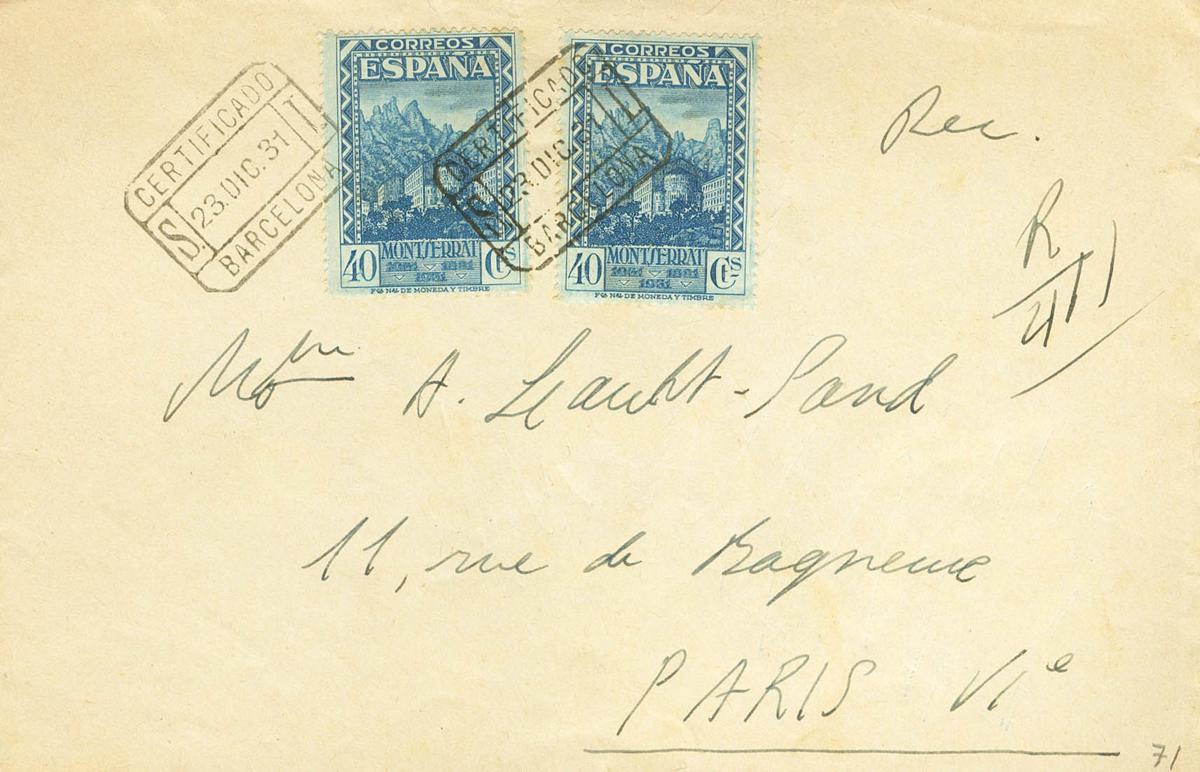 CORREOS
ESPAÑA
40 MONTSERRAT Cts
1931
FCA NAL DE MONEDA Y TIMBRE
CORREOS
ESPAÑA
40 MONTSERRAT Cts
1931
FCA NAL DE MONEDA Y TIMBRE
CERTIFICADO
23.DIC.31
BARCELONA
CERTIFICADO
23.DIC.31
BARCELONA
Rec.
R
A.
11, rue de Bagneux
PARIS VIe
71